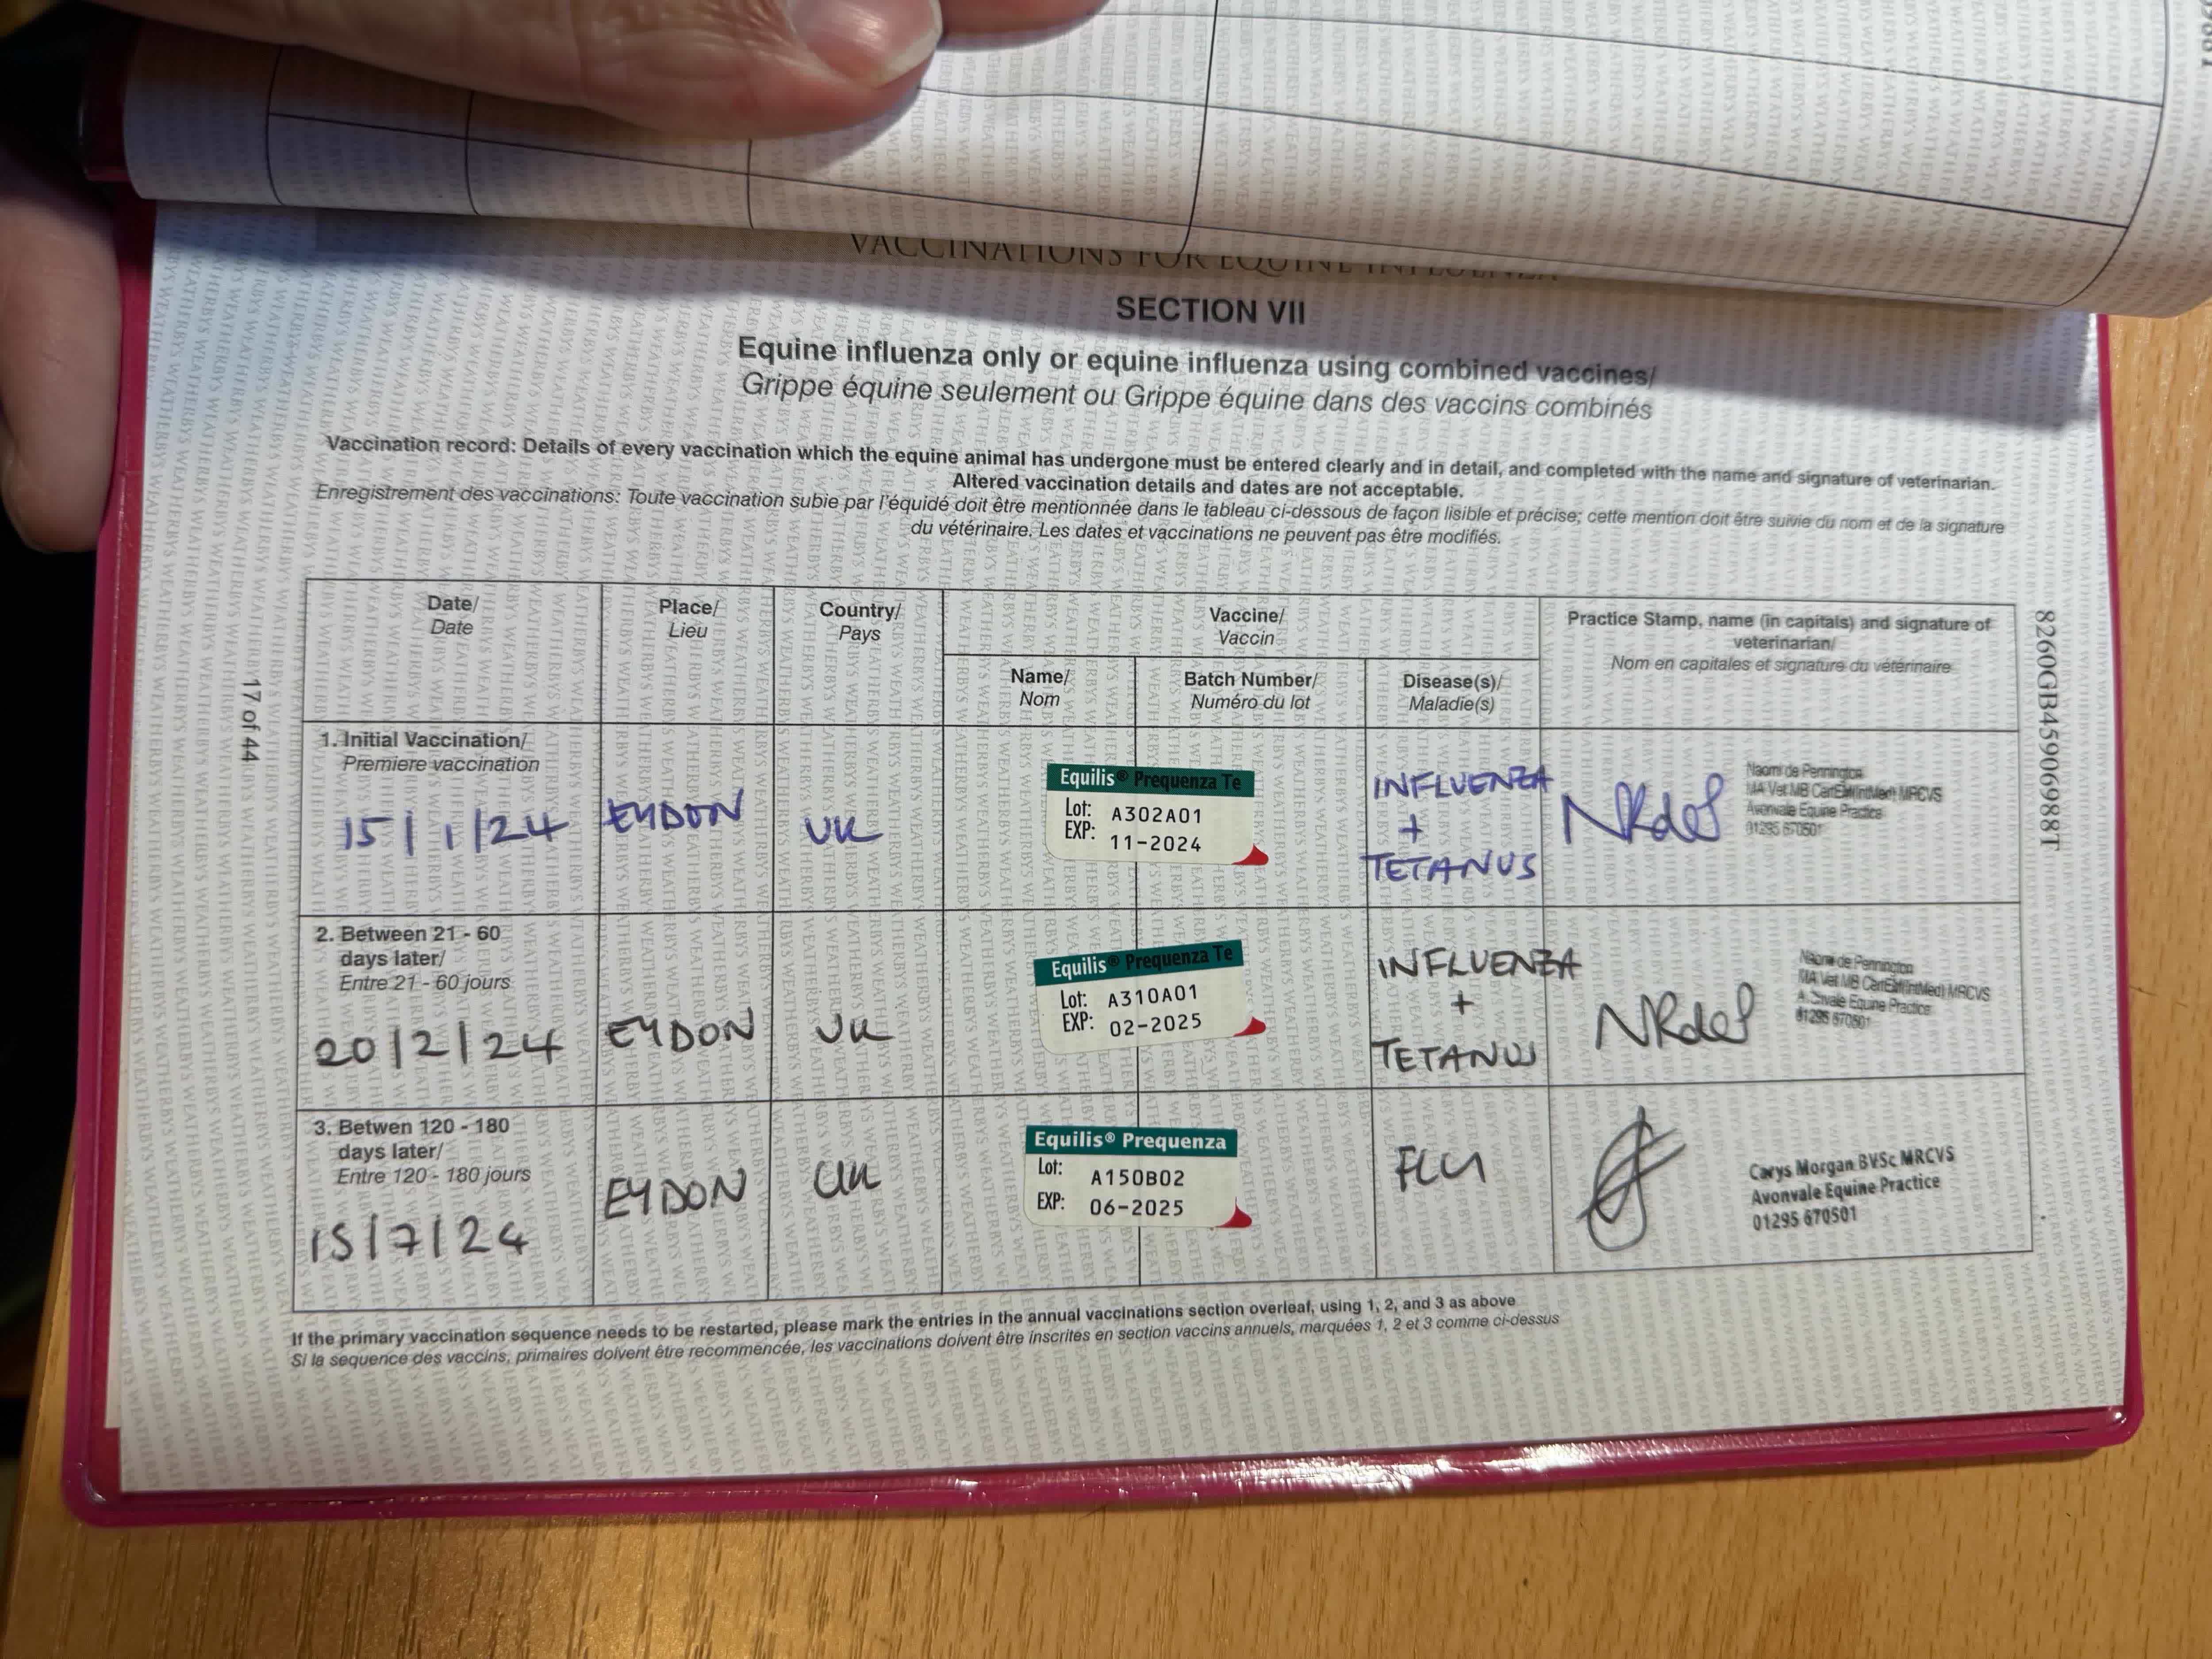 VACCINATIONS FOR EQUINE INFLUENZA
SECTION VII
Equine influenza only or equine influenza using combined vaccines/
Grippe équine seulement ou Grippe équine dans des vaccins combinés
Vaccination record: Details of every vaccination which the equine animal has undergone must be entered clearly and in detail, and completed with the name and signature of veterinarian.
Altered vaccination details and dates are not acceptable.
Enregistrement des vaccinations: Toute vaccination subie par l'équidé doit être mentionnée dans le tableau ci-dessous de façon lisible et précise; cette mention doit être suivie du nom et de la signature
du vétérinaire. Les dates et vaccinations ne peuvent pas être modifiés.
Date/
Date
Place/
Lieu
Country/
Pays
Vaccine/
Vaccin
Name/
Nom
Batch Number/
Numéro du lot
Disease(s)/
Maladie(s)
Practice Stamp, name (in capitals) and signature of
veterinarian/
Nom en capitales et signature du vétérinaire
1. Initial Vaccination/
Premiere vaccination
15/1/24
EYDON
UK
Equilis® Prequenza Te
Lot: A302A01
EXP: 11-2024
INFLUENZA
+
TETANUS
NRdeP
Naomi de Pennington
MA Vet MB CertEM(IntMed) MRCVS
Avonvale Equine Practice
01295 670501
2. Between 21 - 60
days later/
Entre 21 - 60 jours
20/2/24
EYDON
UK
Equilis® Prequenza Te
Lot: A310A01
EXP: 02-2025
INFLUENZA
+
TETANUS
NRdeP
Naomi de Pennington
MA Vet MB CertEM(IntMed) MRCVS
Avonvale Equine Practice
01295 670501
3. Betwen 120 - 180
days later/
Entre 120 - 180 jours
15/7/24
EYDON
UK
Equilis® Prequenza
Lot: A150B02
EXP: 06-2025
FLU
Carys Morgan BVSc MRCVS
Avonvale Equine Practice
01295 670501
If the primary vaccination sequence needs to be restarted, please mark the entries in the annual vaccinations section overleaf, using 1, 2, and 3 as above
Si la sequence des vaccins, primaires doivent être recommencée, les vaccinations doivent être inscrites en section vaccins annuels, marquées 1, 2 et 3 comme ci-dessus
17 of 44
8260GB45906988T
WEATHERBYS